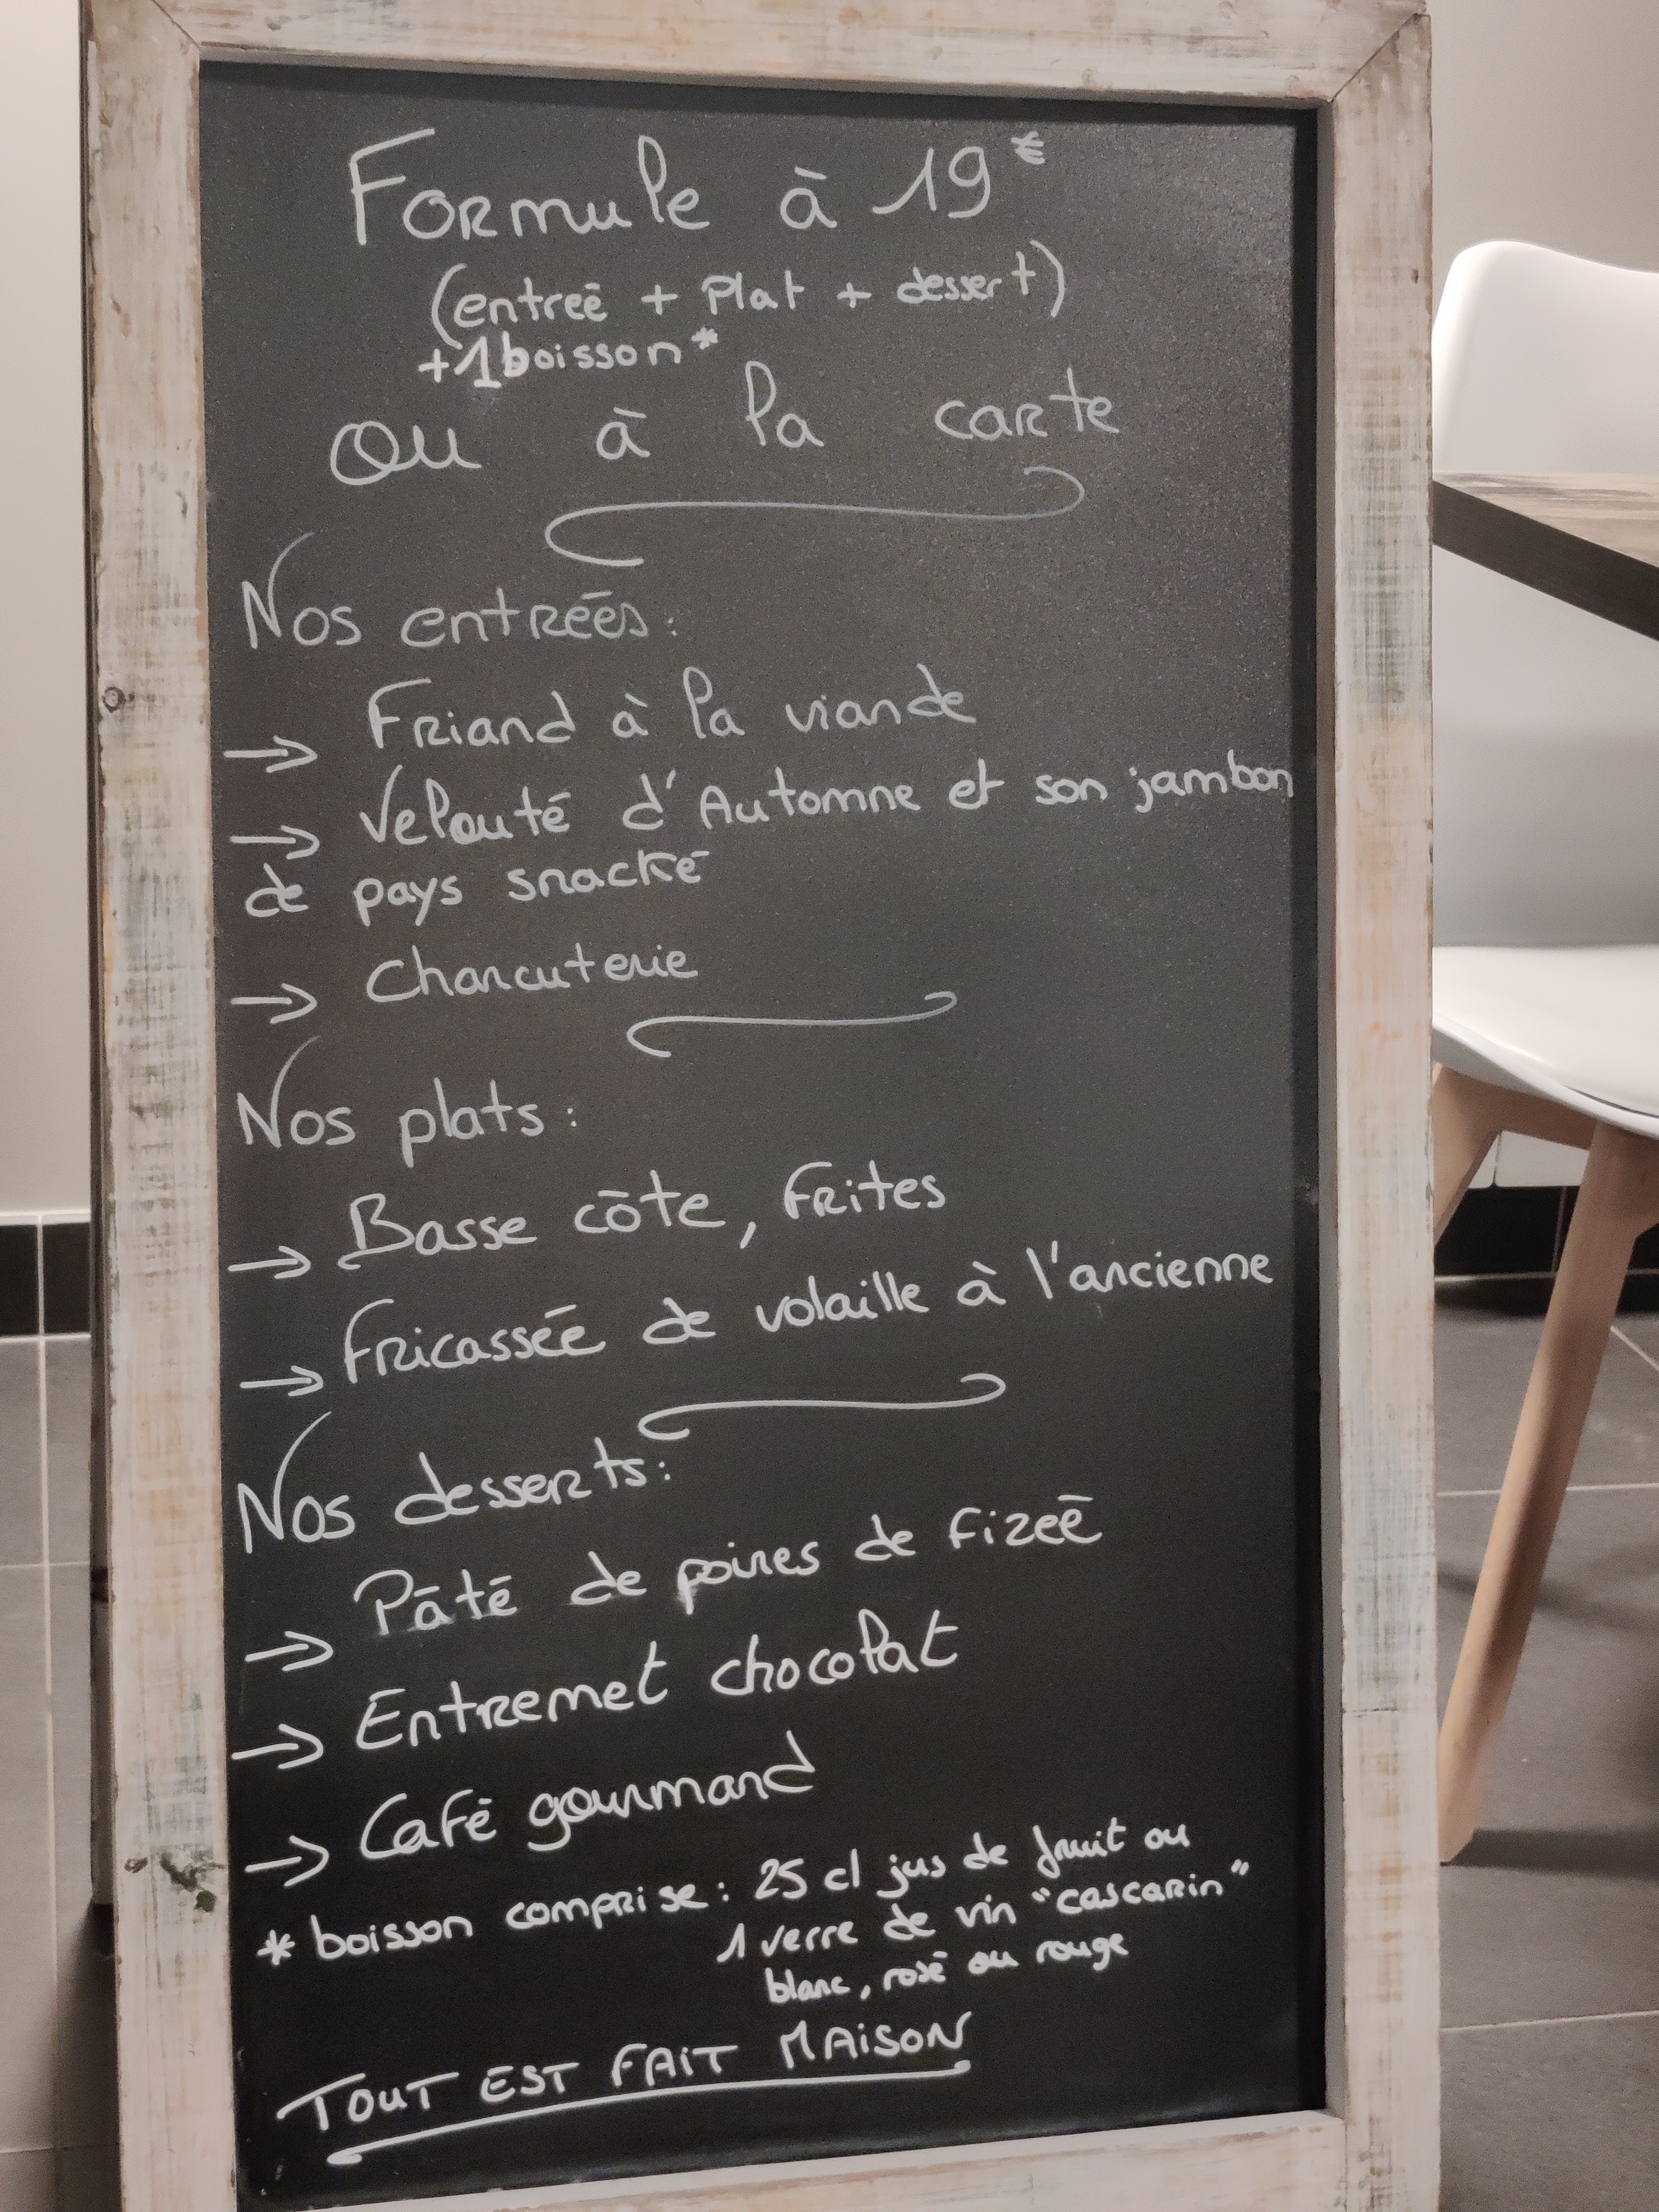 Formule à 19€
(entreé + Plat + dessert)
+1 boisson*
ou à la carte
Nos entrées:
→ Friand à la viande
→ Velouté d'Automne et son jambon
de pays snacké
→ Charcuterie
Nos plats:
→ Basse côte, frites
→ Fricassée de volaille à l'ancienne
Nos desserts:
→ Pâté de poires de fizeé
→ Entremet chocolat
→ Café gourmand
* boisson comprise: 25 cl jus de fruit ou
1 verre de vin "cascarin"
blanc, rosé ou rouge
TOUT EST FAIT MAISON